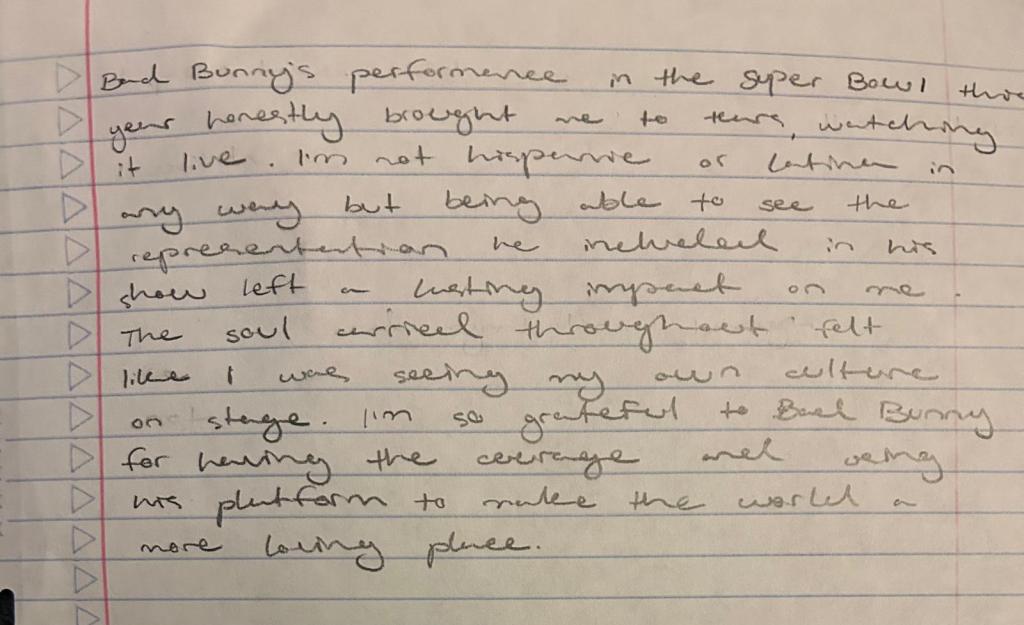 Bad Bunny's performance in the super Bowl this
year honestly brought me to tears, watching
it live. I'm not hispanic or Latina in
any way but being able to see the
representation he included in his
show left a lasting impact on me.
The soul carried throughout felt
like I was seeing my own culture
on stage. I'm so grateful to Bad Bunny
for having the courage and using
his platform to make the world a
more loving place.